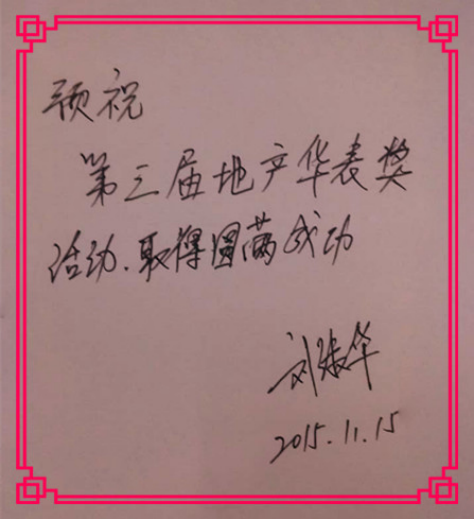 预祝
第三届地产华表奖
活动.取得圆满成功
2015.11.15